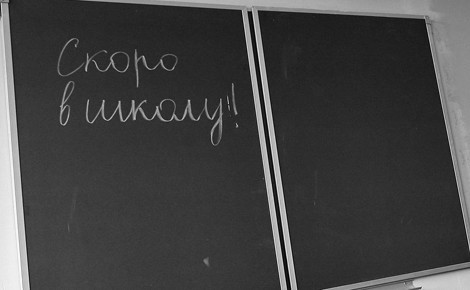 Скоро
в школу!!